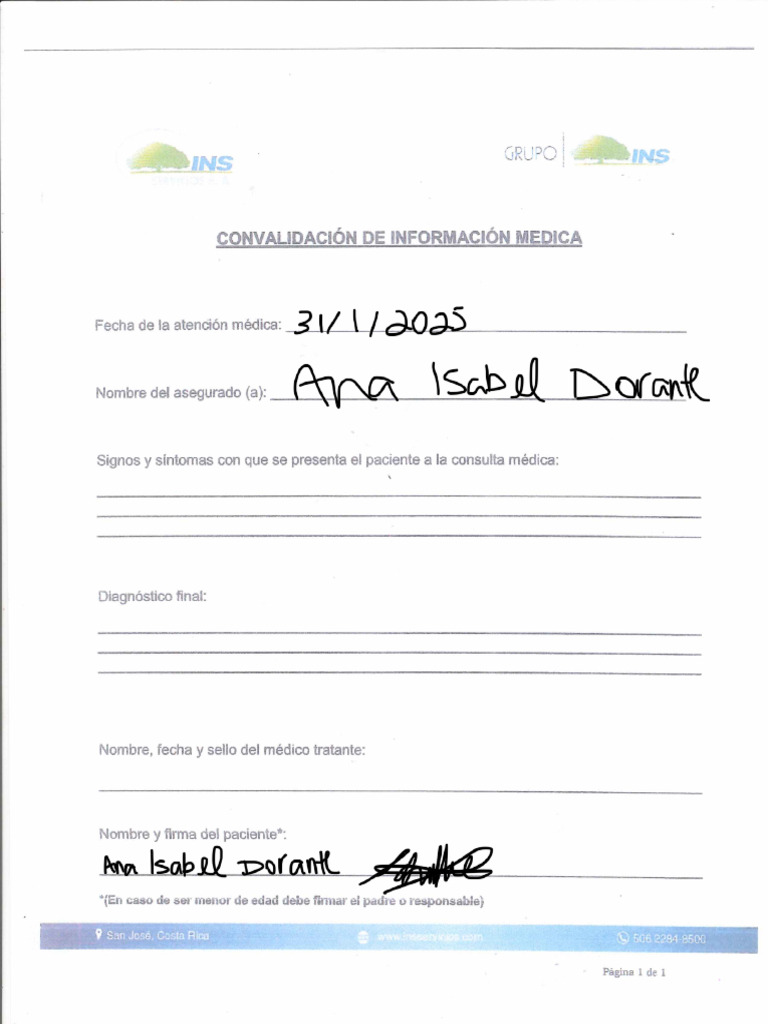 INS
GRUPO INS
CONVALIDACIÓN DE INFORMACIÓN MEDICA
Fecha de la atención médica: 31/1/2025
Nombre del asegurado (a): Ana Isabel Dorante
Signos y sintomas con que se presenta el paciente a la consulta médica:
Diagnóstico final:
Nombre, fecha y sello del médico tratante:
Nombre y firma del paciente*:
Ana Isabel Dorante
*(En caso de ser menor de edad debe firmar el padre o responsable)
San José, Costa Rica
www.insservicios.com
506 2284-8500
Página 1 de 1